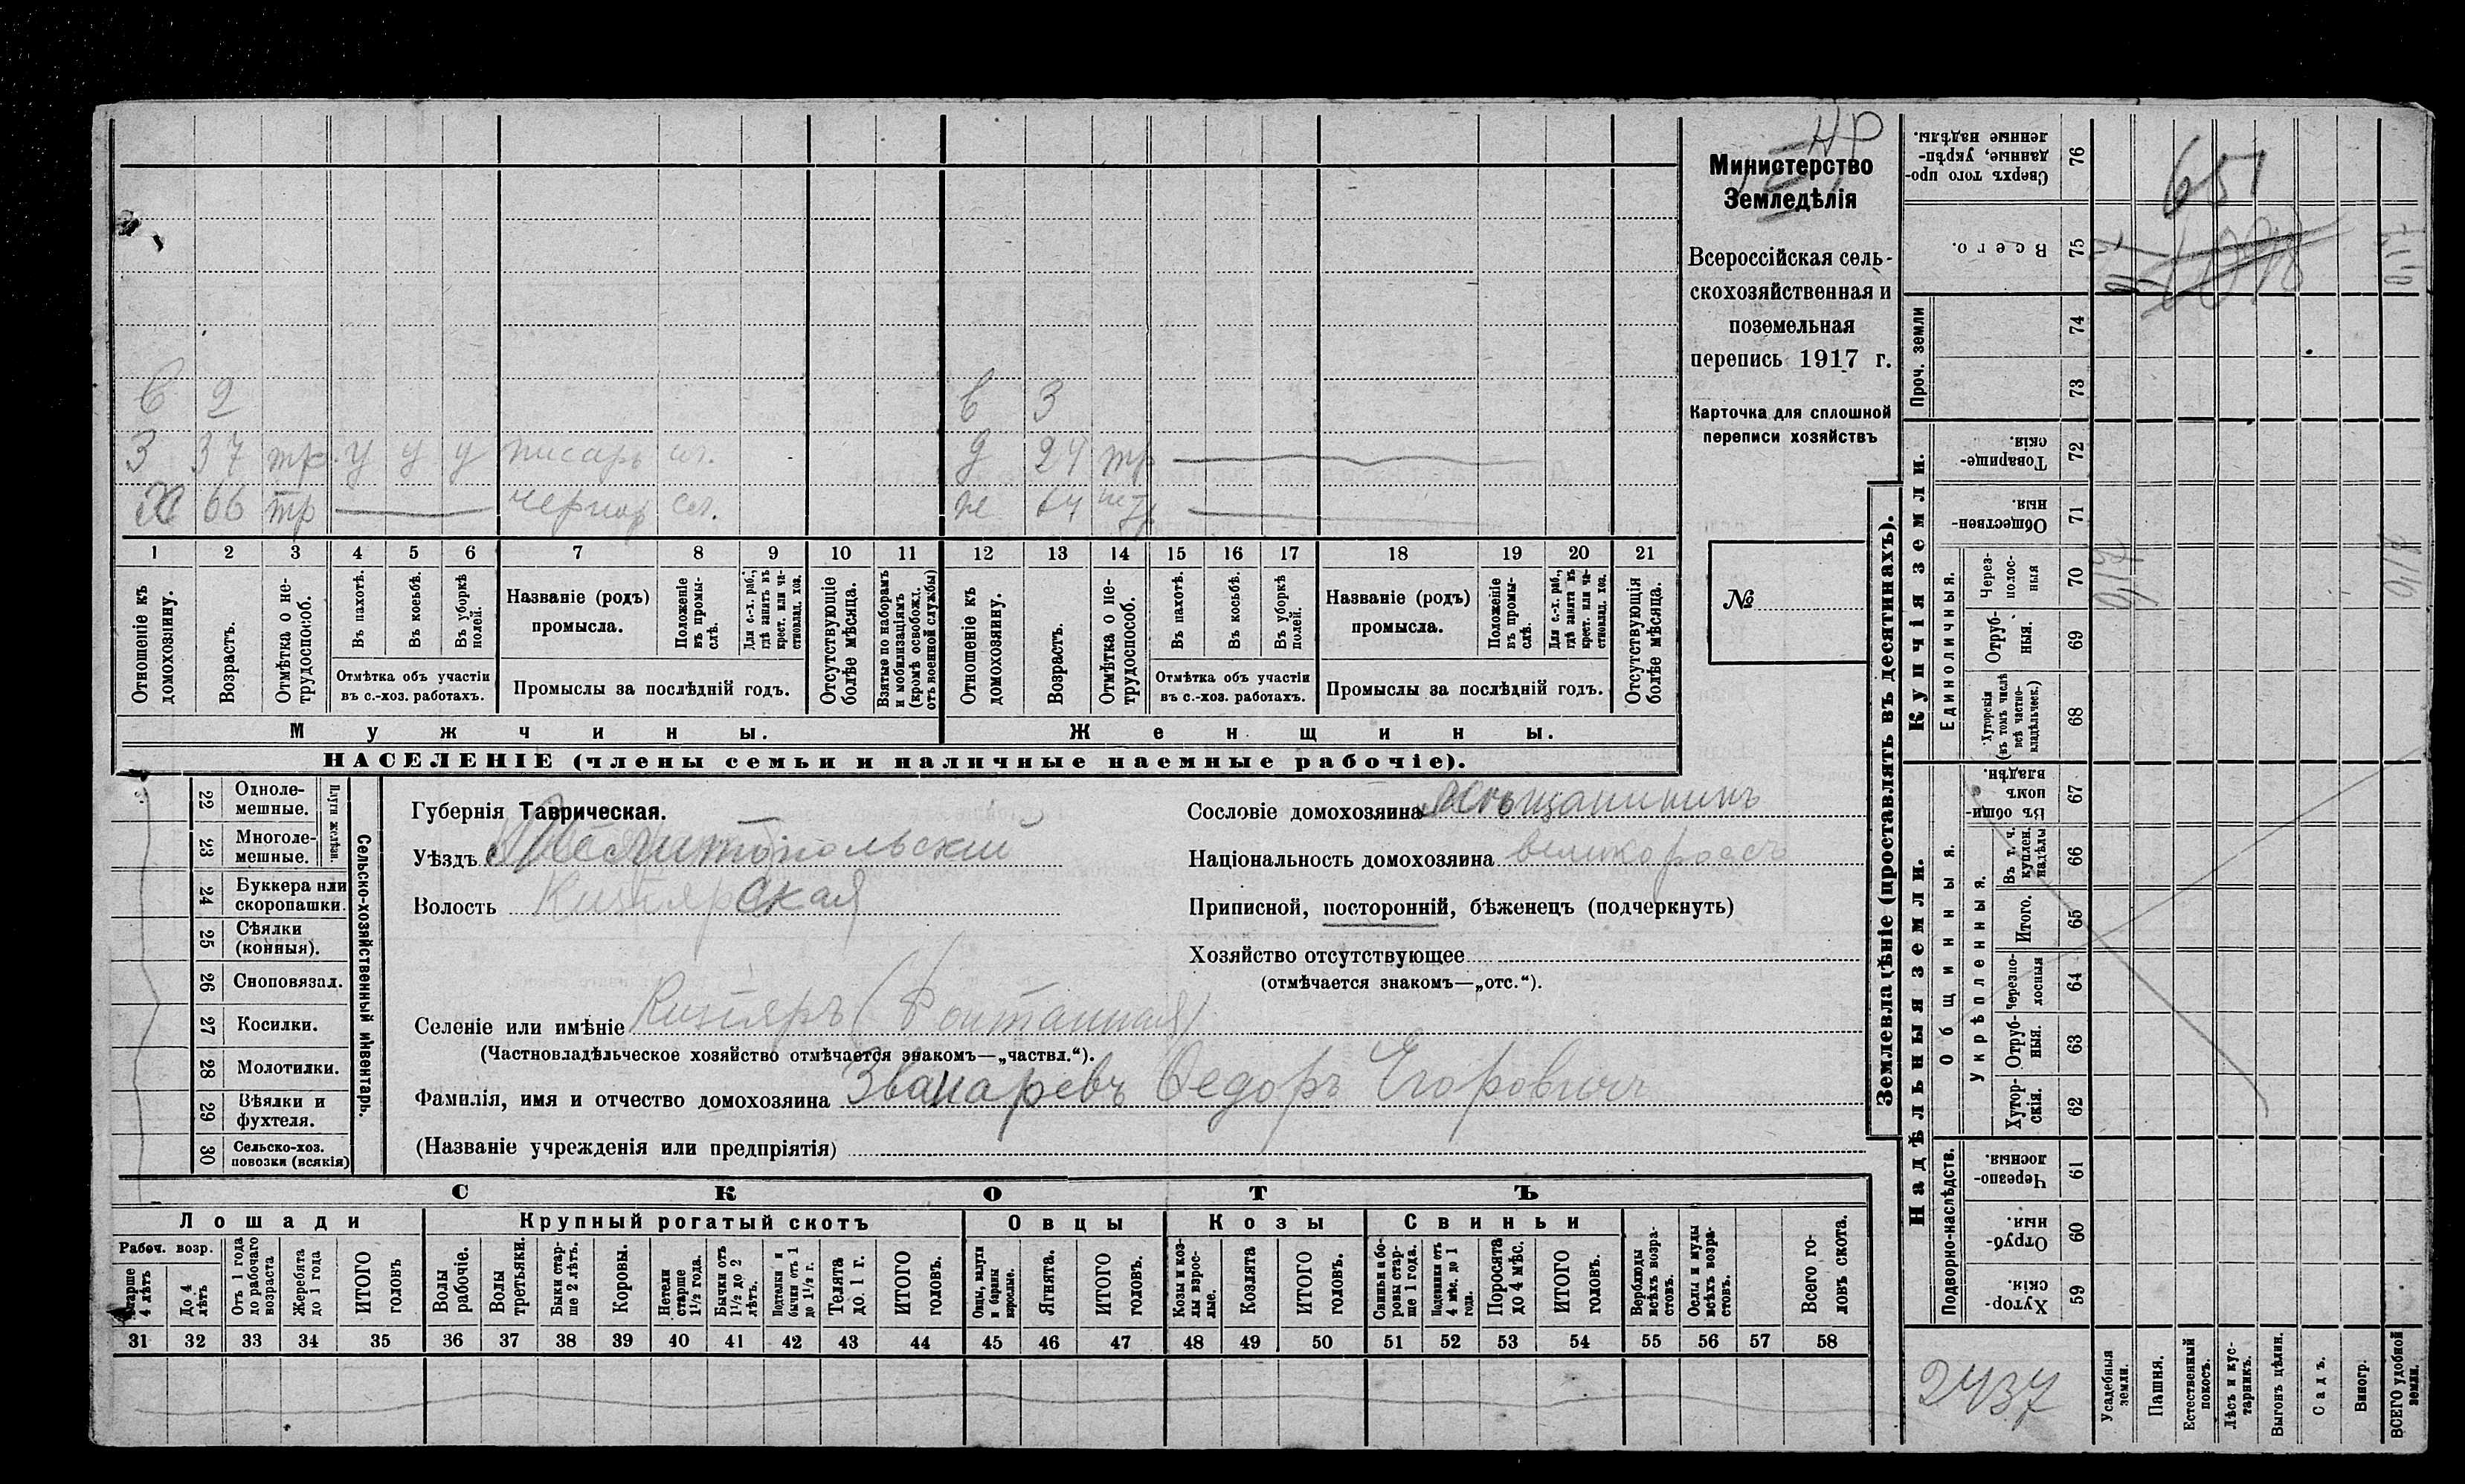 НР
Министерство
Земледѣлія
Всероссійская сель-
скохозяйственная и
поземельная
перепись 1917 г.
Карточка для сплошной
переписи хозяйствъ
№
6 2 в 3
З 37 тр. у у у писарь сл. д 24 тр
Х 66 тр чернор сл. ж 64 нетр
1 2 3 4 5 6 7 8 9 10 11 12 13 14 15 16 17 18 19 20 21
Отношеніе къ домохозяину.
Возрастъ.
Отмѣтка о не-трудоспособ.
Въ пахотѣ.
Въ косьбѣ.
Въ уборкѣ полей.
Отмѣтка объ участіи
въ с.-хоз. работахъ.
Названіе (родъ)
промысла.
Положеніе въ промы-слѣ.
Для с.-х. раб., гдѣ занятъ въ крест. или ча-стновлад. хоз.
Промыслы за послѣдній годъ.
Отсутствующіе болѣе мѣсяца.
Взятые по наборамъ и мобилизаціямъ (кромѣ освобожд. отъ военной службы)
Отношеніе къ домохозяину.
Возрастъ.
Отмѣтка о не-трудоспособ.
Въ пахотѣ.
Въ косьбѣ.
Въ уборкѣ полей.
Отмѣтка объ участіи
въ с.-хоз. работахъ.
Названіе (родъ)
промысла.
Положеніе въ промы-слѣ.
Для с.-х. раб., гдѣ занята въ крест. или ча-стновлад. хоз.
Промыслы за послѣдній годъ.
Отсутствующія болѣе мѣсяца.
Мужчины. Женщины.
НАСЕЛЕНІЕ (члены семьи и наличные наемные рабочіе).
22 Одноле-мешные.
23 Многоле-мешные.
Плуги желѣзн.
24 Буккера или скоропашки.
25 Сѣялки (конныя).
26 Сноповязал.
27 Косилки.
28 Молотилки.
29 Вѣялки и фухтеля.
30 Сельско-хоз. повозки (всякія)
Сельско-хозяйственный инвентарь.
Губернія Таврическая.
Уѣздъ Мелитопольскій
Волость Кизіярская
Сословіе домохозяина Мѣщанинъ
Національность домохозяина великороссъ
Приписной, посторонній, бѣженецъ (подчеркнуть)
Хозяйство отсутствующее
(отмѣчается знакомъ—„отс.“).
Селеніе или имѣніе Кизіяръ (Фонтанная)
(Частновладѣльческое хозяйство отмѣчается знакомъ—„частвл.“).
Фамилія, имя и отчество домохозяина Званаревъ Федоръ Егоровичъ
(Названіе учрежденія или предпріятія)
СКОТЪ
Лошади Крупный рогатый скотъ Овцы Козы Свиньи
Рабоч. возр.
Старше 4 лѣтъ
До 4 лѣтъ
Отъ 1 года до рабочаго возраста
Жеребята до 1 года
ИТОГО головъ
Волы рабочіе.
Волы третьяки.
Быки стар-ше 2 лѣтъ.
Коровы.
Нетели старше 1½ года.
Бычки отъ 1½ до 2 лѣтъ.
Подтелки и бычки отъ 1 до 1½ г.
Телята до 1 г.
ИТОГО головъ.
Овцы, валухи и бараны взрослые.
Ягнята.
ИТОГО головъ.
Козы и коз-лы взрос-лые.
Козлята
ИТОГО головъ.
Свиньи и бо-ровы стар-ше 1 года.
Подсвинки отъ 4 мѣс. до 1 года.
Поросята до 4 мѣс.
ИТОГО головъ.
Верблюды всѣхъ возра-стовъ.
Ослы и мулы всѣхъ возра-стовъ.
Всего го-ловъ скота.
31 32 33 34 35 36 37 38 39 40 41 42 43 44 45 46 47 48 49 50 51 52 53 54 55 56 57 58
Землевладѣніе (проставлять въ десятинахъ).
Купчія земли.
Надѣльныя земли.
Сверхъ того про-данные, укрѣп-ленные надѣлы. 76
651
Всего. 75
Проч. земли 74 73
Товарище-скія. 72
Обществен-ныя. 71
Единоличныя.
Через-полос-ныя 70
Отруб-ныя. 69
Хуторскія (въ томъ числѣ всѣ частно-владѣльческ.) 68
Общинныя.
Въ общин-номъ владѣн. 67
Въ т. ч. куплен. надѣлы 66
Укрѣпленныя.
Итого. 65
Черезпо-лосныя 64
Отруб-ныя. 63
Хутор-скія. 62
Подворно-наслѣдств.
Черезпо-лосныя. 61
Отруб-ныя. 60
Хутор-скія. 59
2437
Усадебныя земли.
Пашня.
Естественный покосъ.
Лѣсъ и кус-тарникъ.
Выгонъ цѣлин.
Садъ.
Виногр.
ВСЕГО удобной земли.